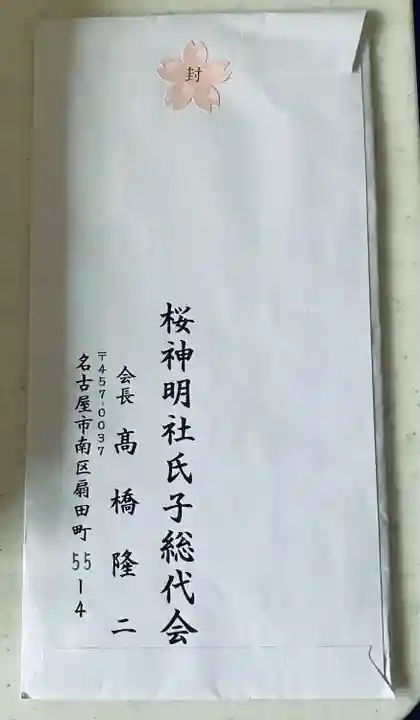 封
桜神明社氏子総代会
会長 髙橋隆二
〒457-0037
名古屋市南区扇田町55-4